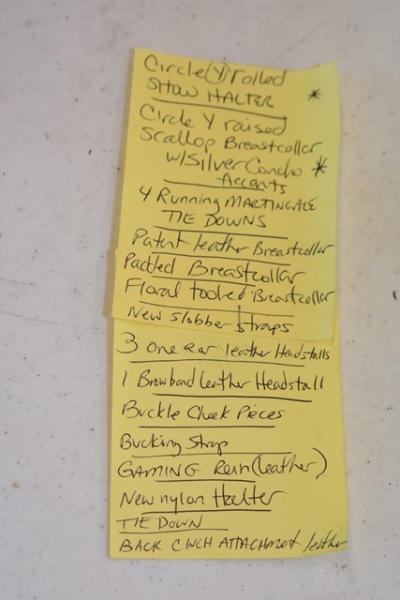 Circle Y rolled
SHOW HALTER *
Circle Y raised
Scallop Breastcollar
w/Silver Concho *
Accents
4 Running MARTINGALE
TIE DOWNS
Patent leather Breastcollar
Padded Breastcollar
Floral tooled Breastcollar
New slobber straps
3 one ear leather Headstalls
1 Browband leather Headstall
Buckle Cheek Pieces
Bucking Strap
GAMING Rein (leather)
New nylon Halter
TIE DOWN
BACK CINCH ATTACHMENT leather